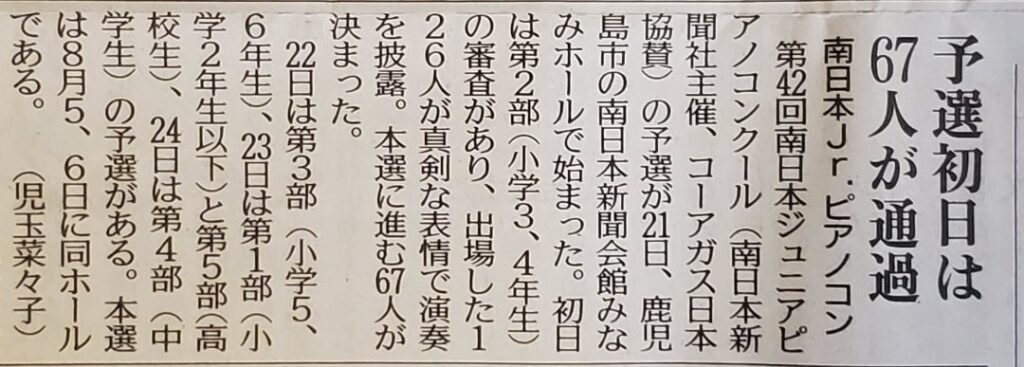 予選初日は
67人が通過
南日本Jr.ピアノコン
第42回南日本ジュニアピ
アノコンクール（南日本新
聞社主催、コーアガス日本
協賛）の予選が21日、鹿児
島市の南日本新聞会館みな
みホールで始まった。初日
は第２部（小学３、４年生）
の審査があり、出場した１
２６人が真剣な表情で演奏
を披露。本選に進む67人が
決まった。
22日は第３部（小学５、
６年生）、23日は第１部（小
学２年生以下）と第５部（高
校生）、24日は第４部（中
学生）の予選がある。本選
は８月５、６日に同ホール
である。（児玉菜々子）